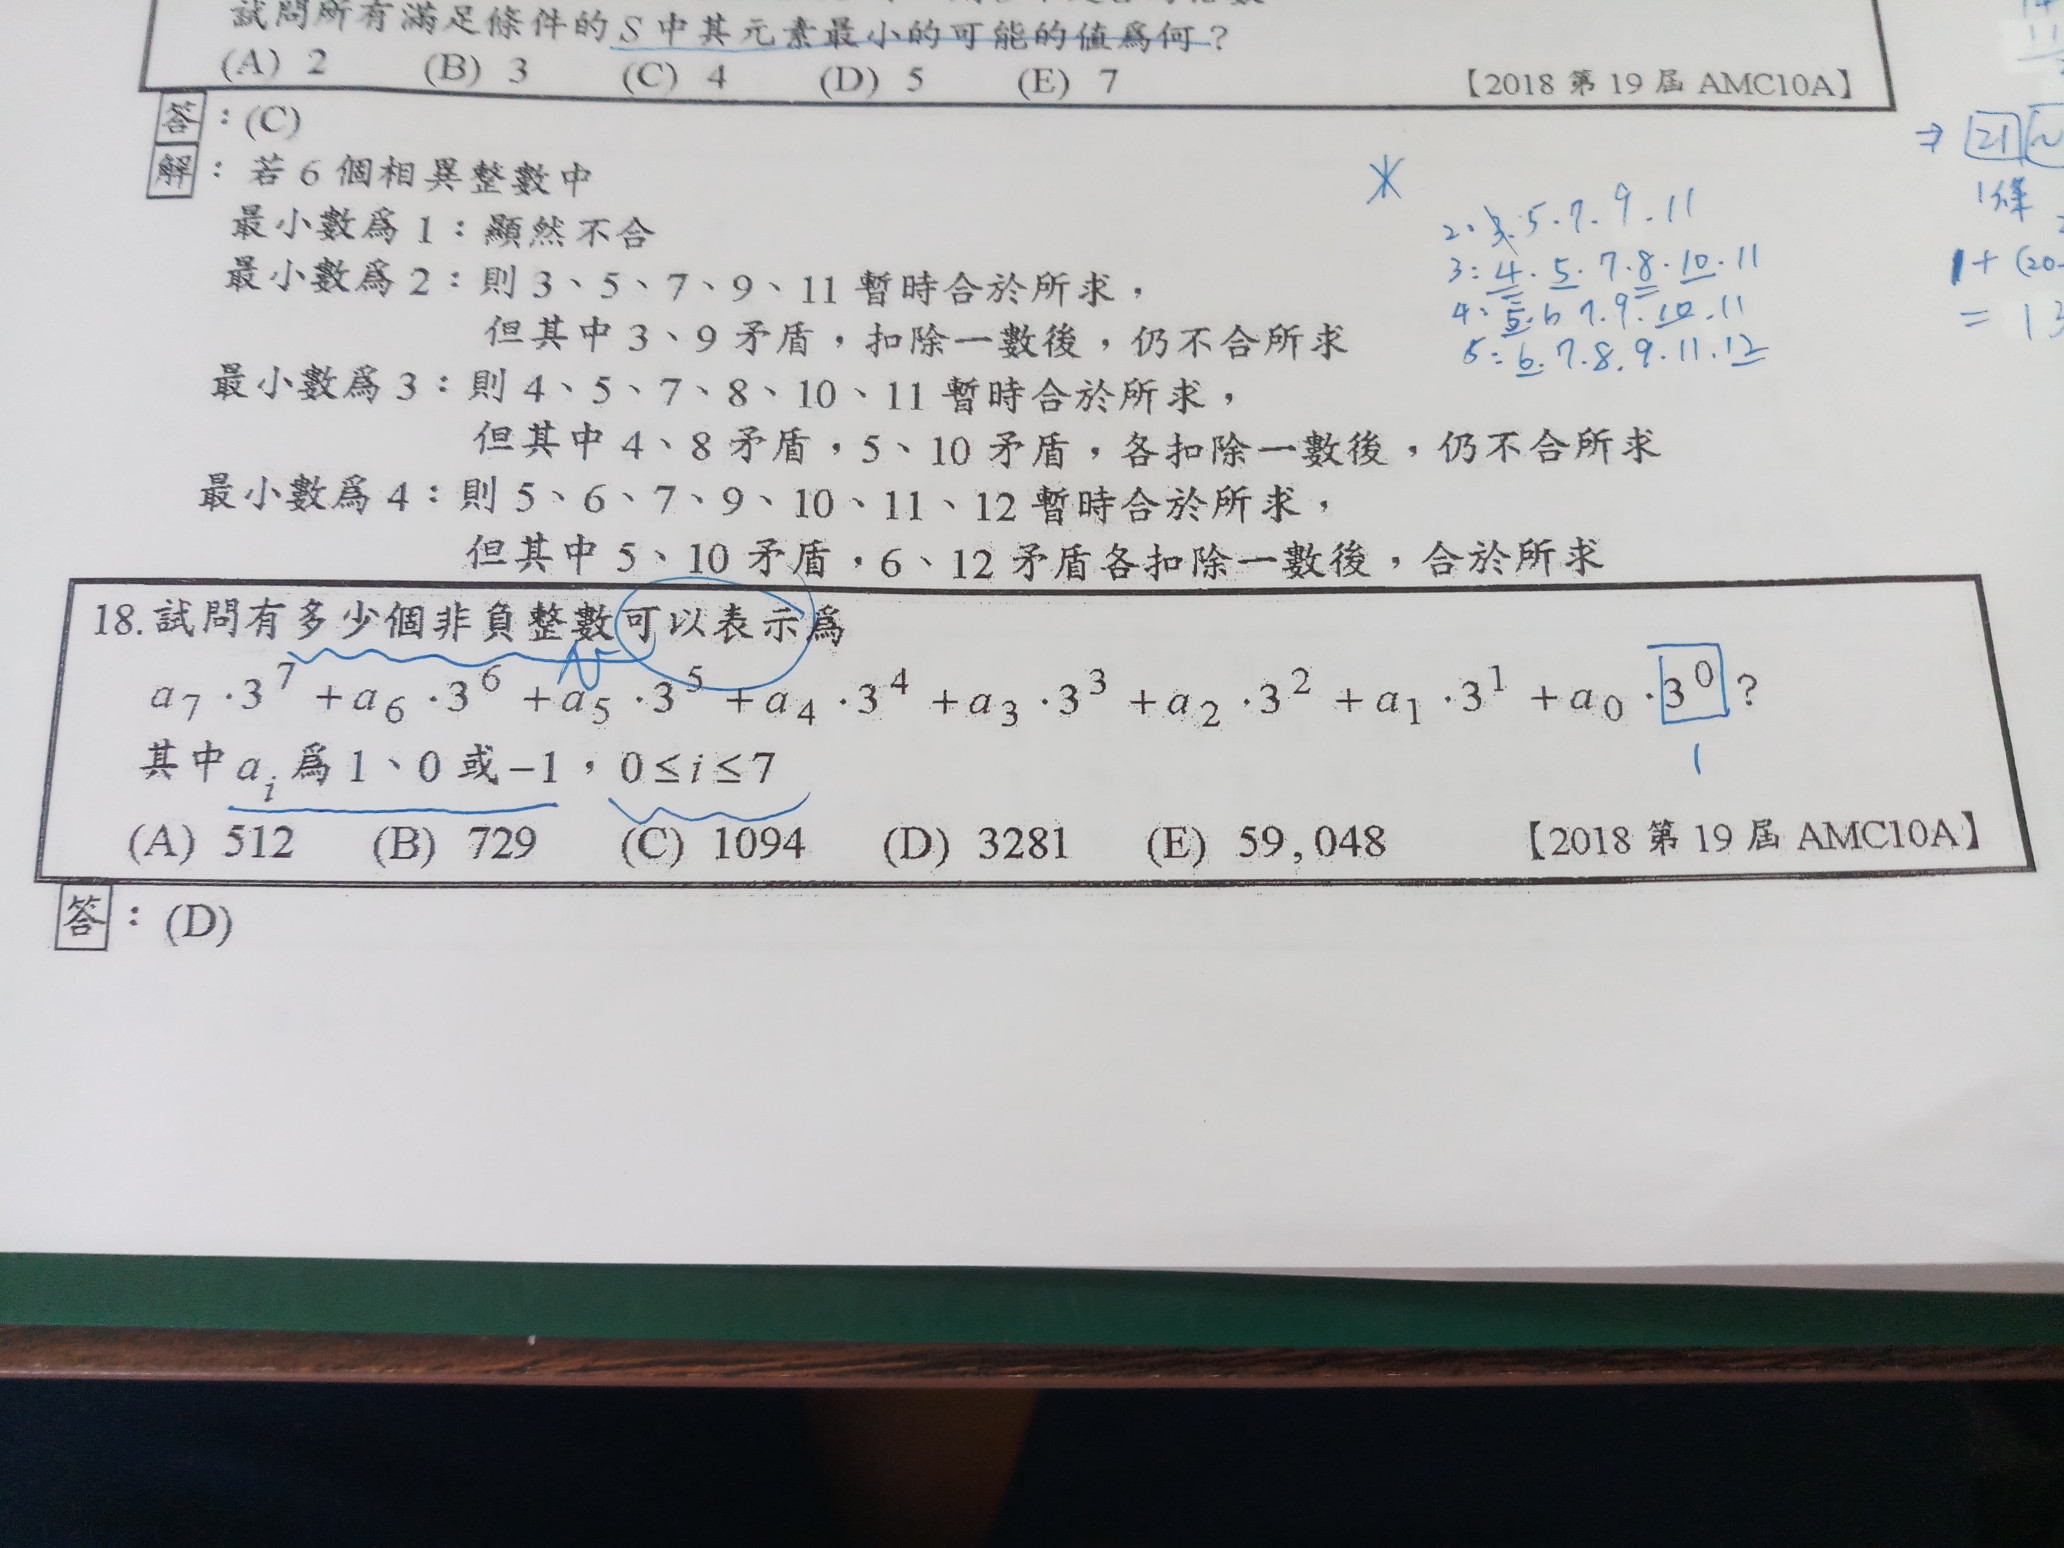 試問所有滿足條件的 S 中其元素最小的可能的值為何？
(A) 2 (B) 3 (C) 4 (D) 5 (E) 7 【2018 第 19 屆 AMC10A】
答：(C)
解：若 6 個相異整數中
最小數為 1：顯然不合
最小數為 2：則 3、5、7、9、11 暫時合於所求，
但其中 3、9 矛盾，扣除一數後，仍不合所求
最小數為 3：則 4、5、7、8、10、11 暫時合於所求，
但其中 4、8 矛盾，5、10 矛盾，各扣除一數後，仍不合所求
最小數為 4：則 5、6、7、9、10、11、12 暫時合於所求，
但其中 5、10 矛盾，6、12 矛盾各扣除一數後，合於所求
2: 3. 5. 7. 9. 11
3: 4. 5. 7. 8. 10. 11
4: 5. 6 7. 9. 10. 11
5: 6. 7. 8. 9. 11. 12
⇒ 21
1 + (20
= 13
18. 試問有多少個非負整數可以表示為
N
a₇·3⁷ + a₆·3⁶ + a₅·3⁵ + a₄·3⁴ + a₃·3³ + a₂·3² + a₁·3¹ + a₀·3⁰？
其中 aᵢ 為 1、0 或 −1，0 ≤ i ≤ 7
1
(A) 512 (B) 729 (C) 1094 (D) 3281 (E) 59,048 【2018 第 19 屆 AMC10A】
答：(D)